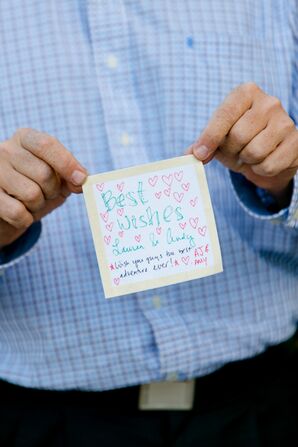 Best
Wishes
Lauren & Andy
Wish you guys the best
adventure ever!
AJ &
Amy